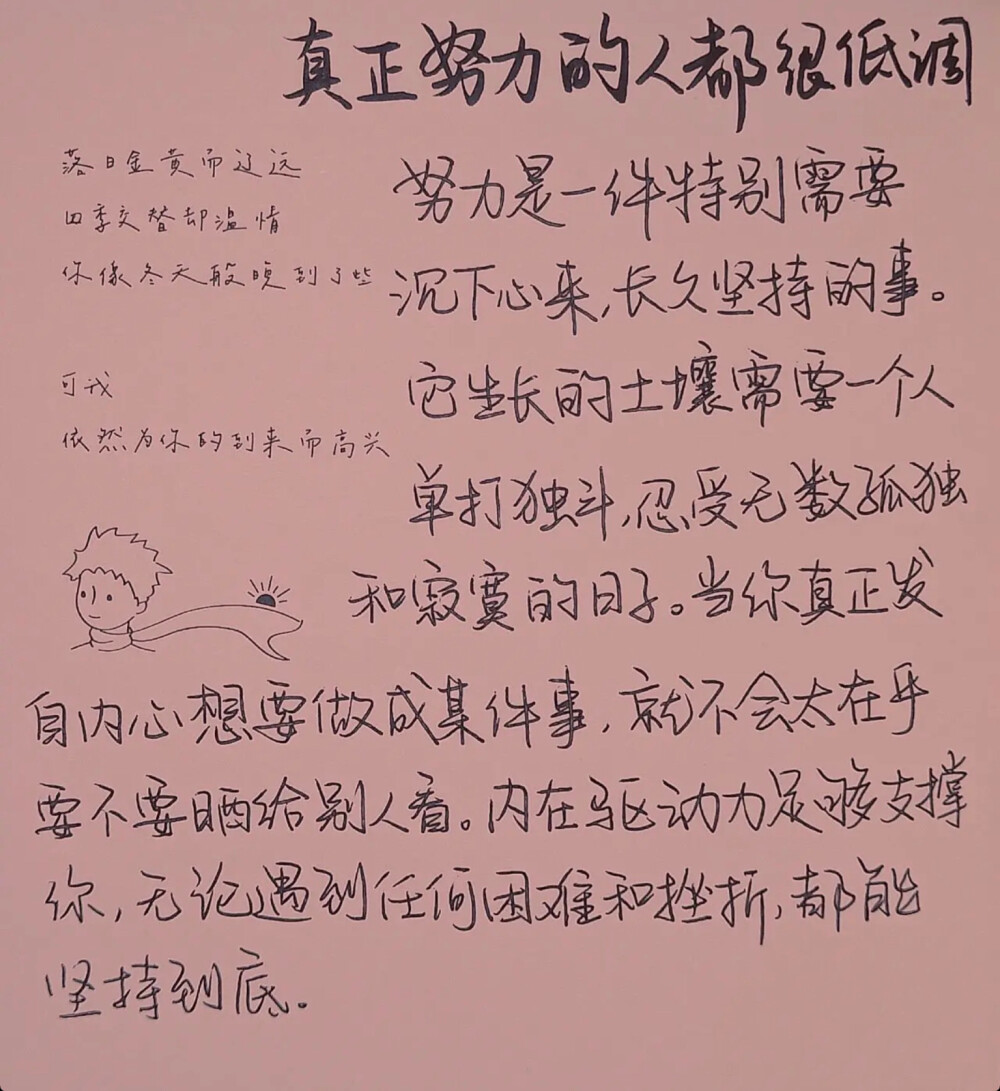 真正努力的人都很低调
落日金黄而辽远
四季交替却温情
你像冬天般晚到了些
可我
依然为你的到来而高兴
努力是一件特别需要
沉下心来,长久坚持的事。
它生长的土壤需要一个人
单打独斗,忍受无数孤独
和寂寞的日子。当你真正发
自内心想要做成某件事,就不会太在乎
要不要晒给别人看。内在驱动力足够支撑
你,无论遇到任何困难和挫折,都能
坚持到底.